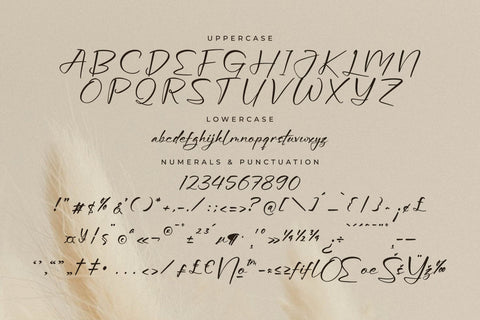 UPPERCASE
ABCDEFGHIJKLMN
OPQRSTUVWXYZ
LOWERCASE
abcdefghijklmnopqrstuvwxyz
NUMERALS & PUNCTUATION
1234567890
!"#$%&'()*+,-./:;<=>?@[\]^_`{|}~¡¢£
¤¥¦§¨©ª«¬®¯°±²³´µ¶·¸¹º»¼½¾¿÷